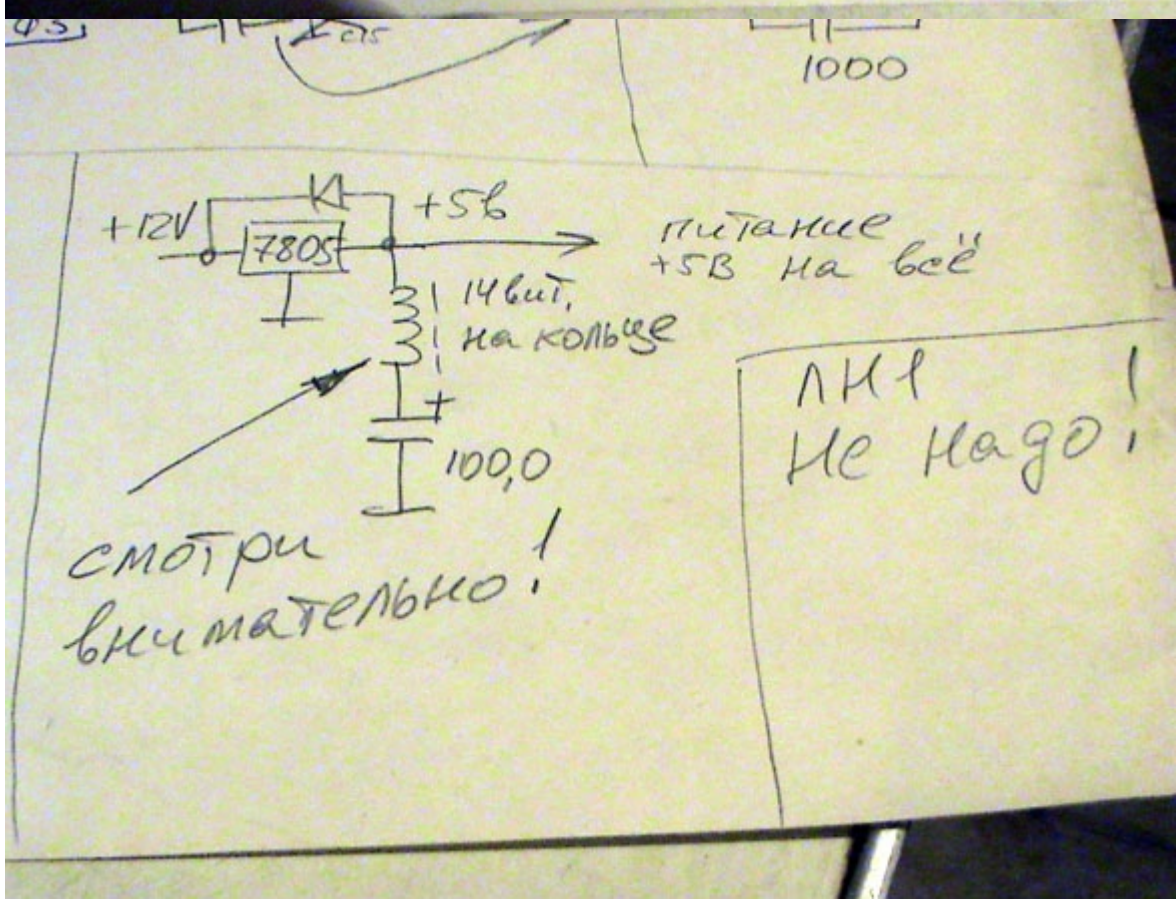 1000
+12V
7805
+5в
питание
+5В на всё
14 вит.
на кольце
+
100,0
смотри
внимательно!
ЛН1 !
не надо!